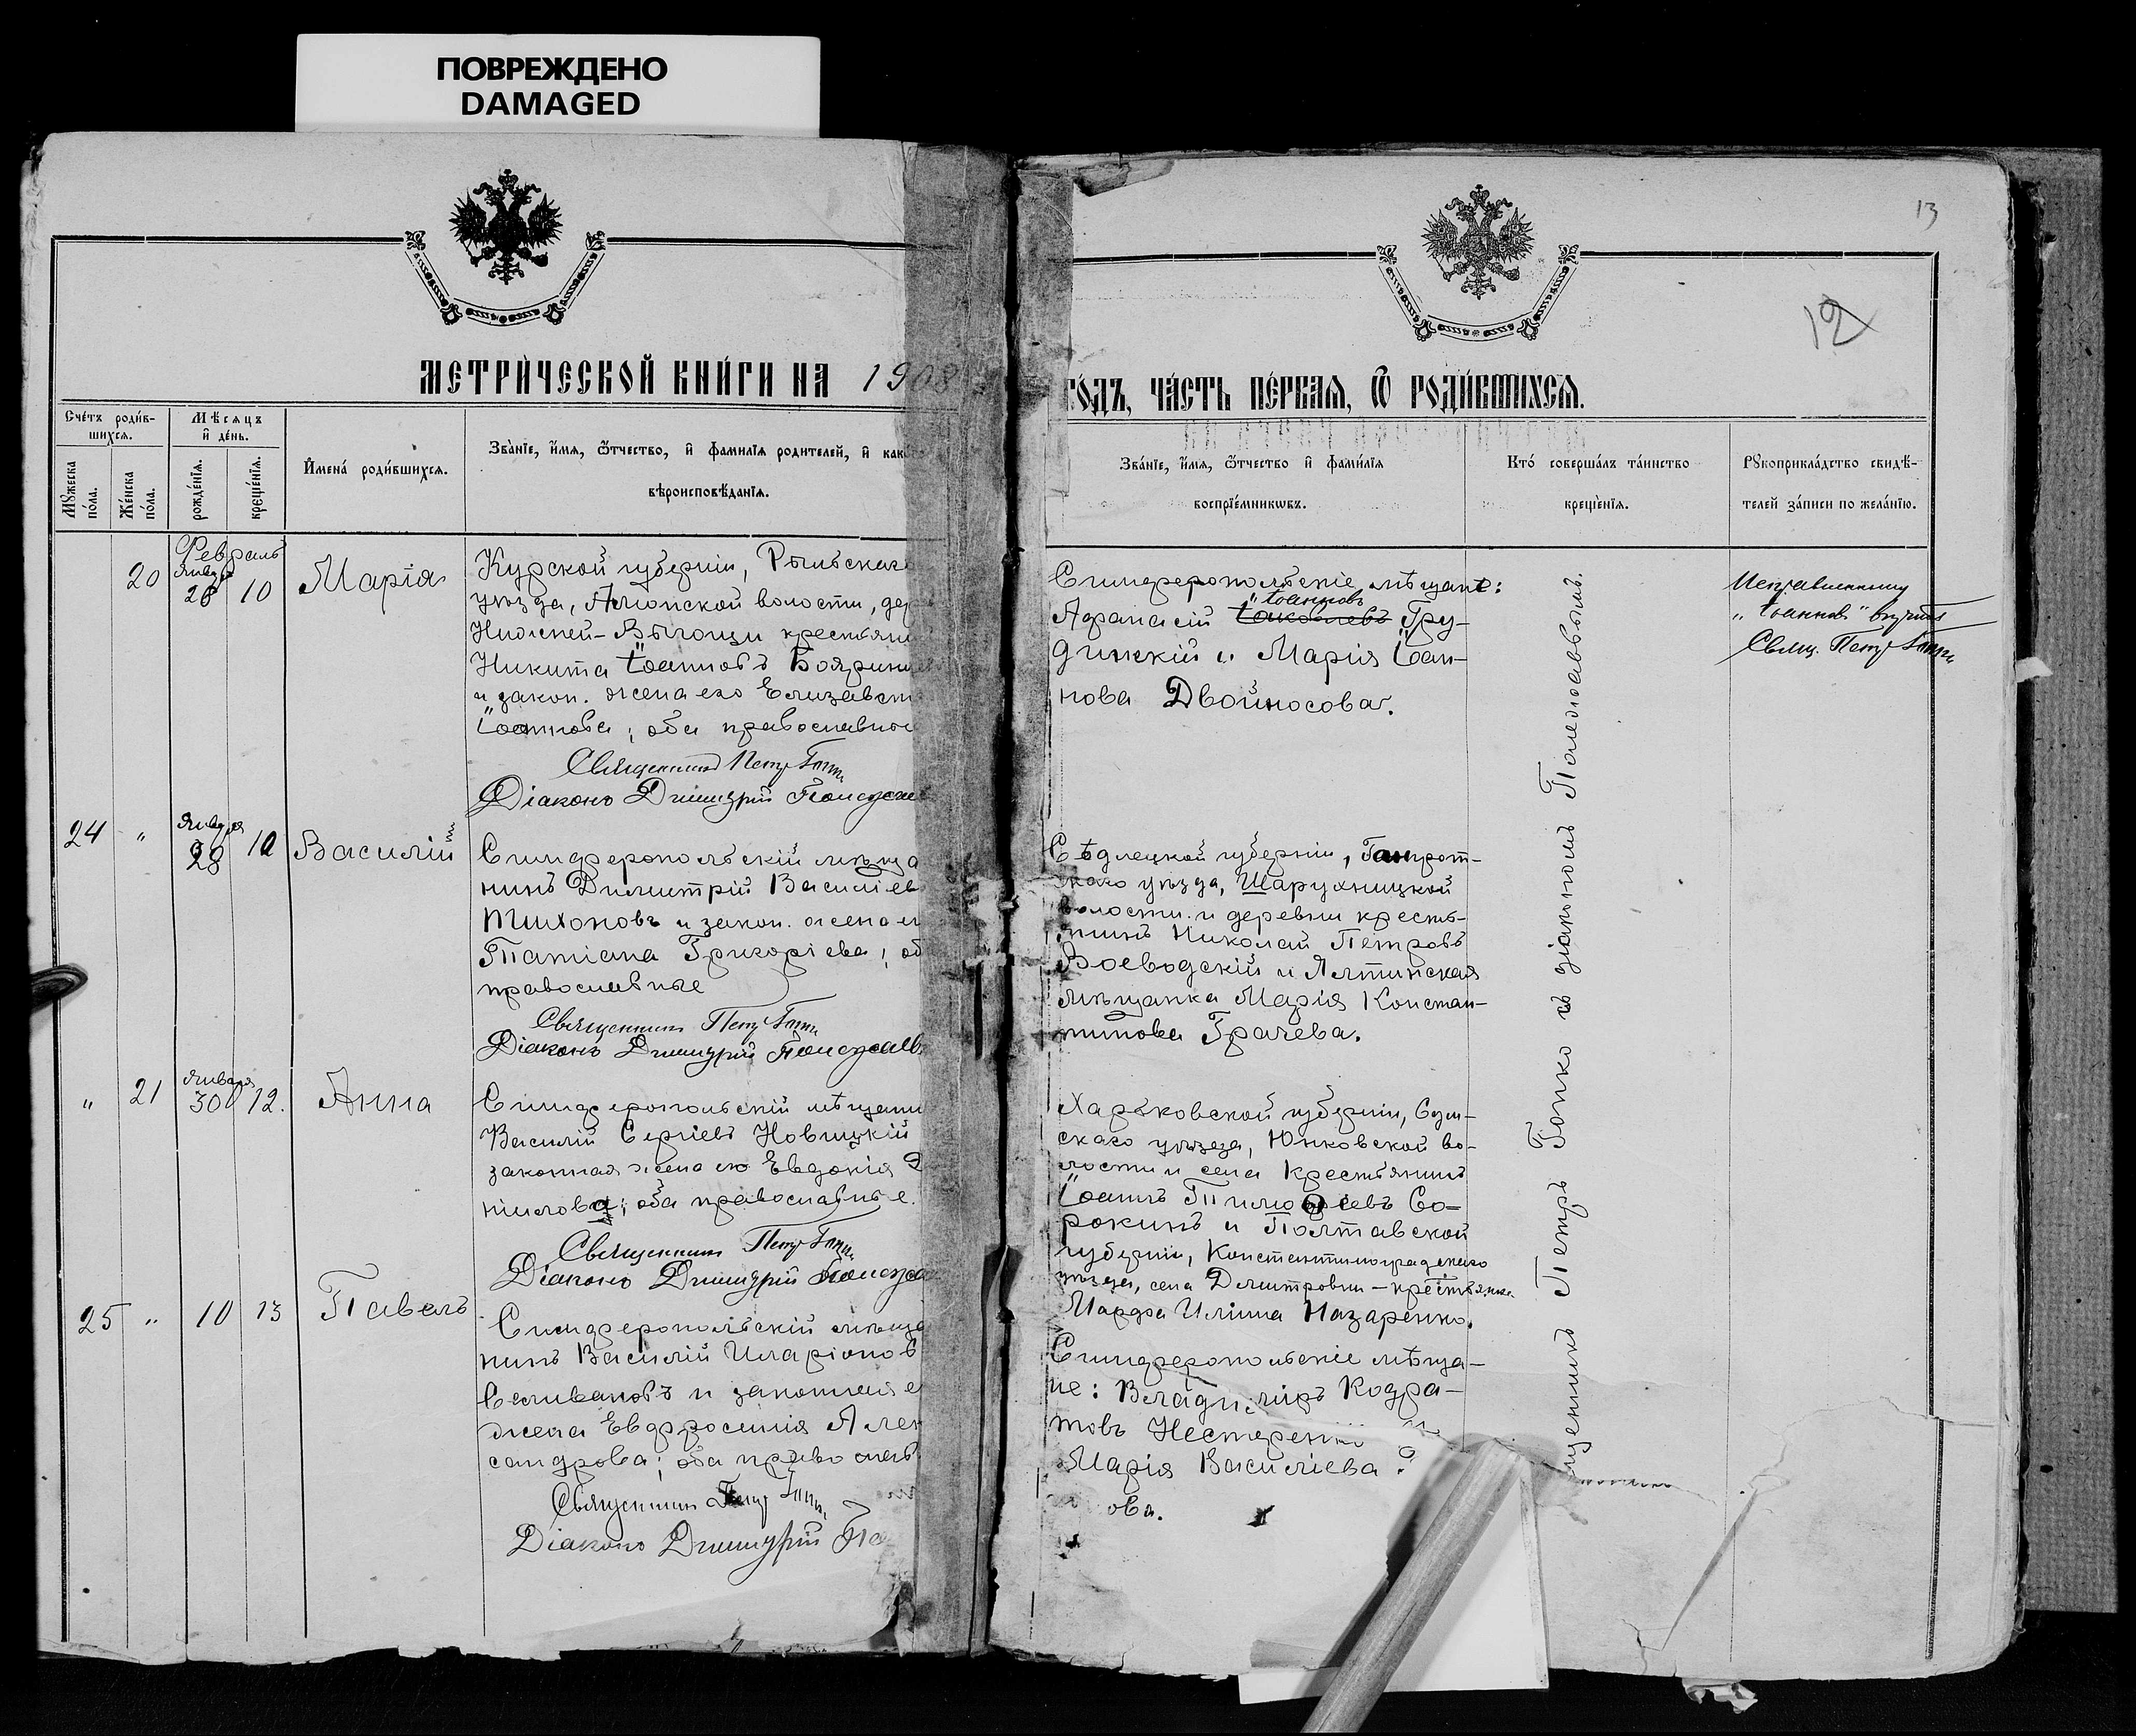 ПОВРЕЖДЕНО
DAMAGED
13
12
МЕТРИ́ЧЕСКОЙ КНИ́ГИ НА 1908
ГО́ДЪ, ЧА́СТЬ ПЕ́РВАЯ, Ѿ РОДИ́ВШИХСЯ.
Сче́тъ роди́в-
шихся.
Мꙋ́жеска по́ла.
Же́нска по́ла.
Мѣ́сяцъ
и҆ де́нь.
рожде́нїя.
креще́нїя.
И҆мена̀ роди́вшихся.
Зва́нїе, и҆́мя, ѻ҆́тчество, и҆ фами́лїя роди́телей, и҆ как
вѣроисповѣ́данїя.
Зва́нїе, и҆́мя, ѻ҆́тчество и҆ фами́лїя
воспрїе́мникωвъ.
Кто̀ соверша́лъ та́инство
креще́нїя.
Рꙋкоприкла́дство свидѣ́-
телей за́писи по жела́нїю.
20
Февраль
Января
28
10
Марія
Курской губерніи, Рыльскаго
уѣзда, волости, дер
Нижней- крестьяни
Никита Іоанновъ
и закон. жена его Елизавет
Іоаннова; оба православные
Священникъ Петръ Гапко
Діаконъ Димитрій
Симферопольскіе мѣщане:
Іоанновъ
Афанасій Іаковлевъ Гру-
динскій и Марія Іоан-
нова Двойносова.
Исправленному
„Іоанновъ" вѣрить
Свящ. Петръ Гапко
24
"
Января
28
10
Василій
Симферопольскій мѣща
нинъ Димитрій Василіев
Тихоновъ и закон. жена его
Татіана Григоріева; об
православные
Священникъ Петръ Гапко
Діаконъ Димитрій
Сѣдлецкой губерніи,
скаго уѣзда,
волости и деревни кресть-
янинъ Николай Петровъ
Воеводскій и Ялтинская
мѣщанка Марія Констан-
тинова Грачева.
"
21
Января
30
12.
Анна
Симферопольскій мѣщани
Василій Сергіевъ Новицкій
законная жена его Евдокія Д
ніилова; оба православные.
Священникъ Петръ Гапко
Діаконъ Димитрій
Харьковской губерніи, Сум-
скаго уѣзда, Юнковской во-
лости и села крестьянинъ
Іоаннъ Тимоѳеевъ Со-
рокинъ и Полтавской
губерніи, Константиноградскаго
уѣзда, села Димитровки - крестьянка
Марфа Илiина Назаренко.
25
"
10
13
Павелъ
Симферопольскій мѣща
нинъ Василій Иларіонов
Селивановъ и законная е
жена Евфросинія Алек
сандрова; оба православ
Священникъ Петръ Гапко
Діаконъ Димитрій По
Симферопольскіе мѣща-
не: Владиміръ Кодра-
товъ Нестеренко
Марія Василіева
ова.
щенникъ Петръ Гапко съ діакономъ